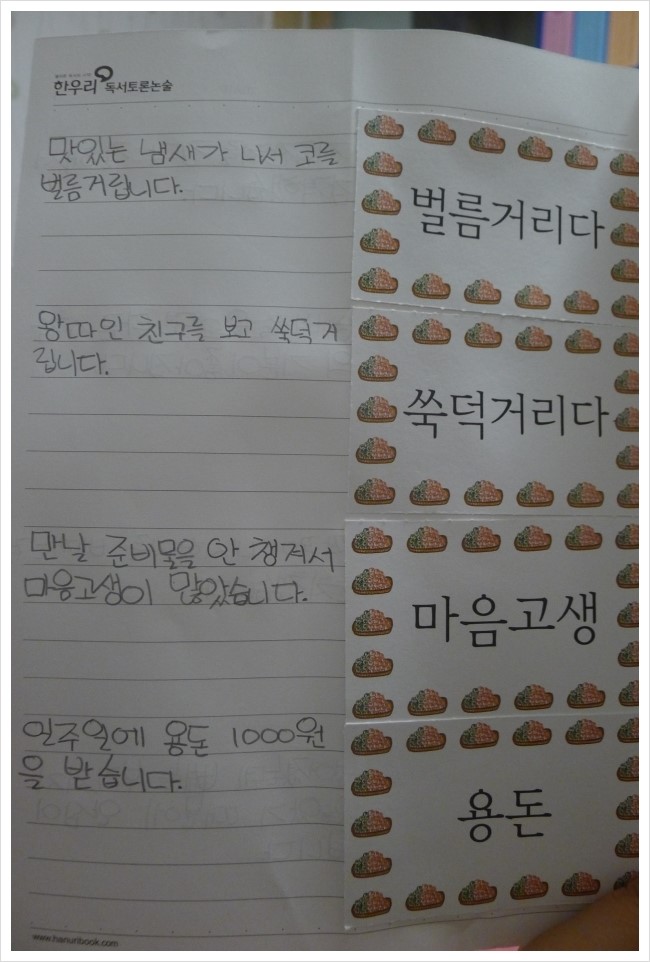 한우리 독서토론논술
맛있는 냄새가 나서 코를
벌름거립니다.
벌름거리다
왕따인 친구를 보고 쑥덕거
립니다.
쑥덕거리다
맨날 준비물을 안 챙겨서
마음고생이 많았습니다.
마음고생
일주일에 용돈 1000원
을 받습니다.
용돈
www.hanuribook.com